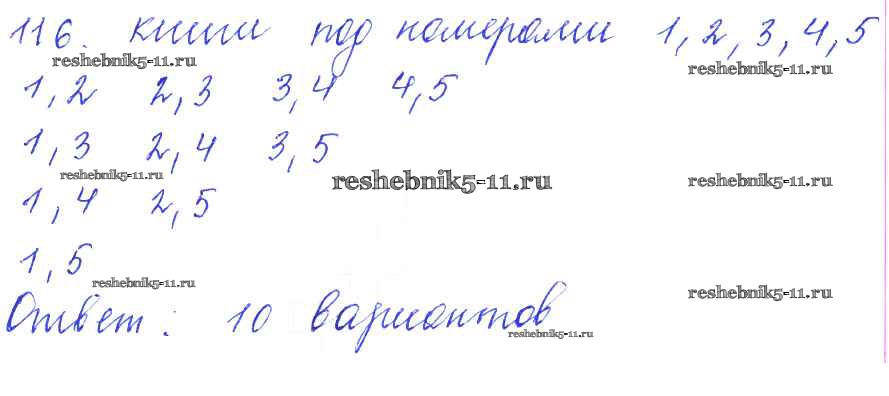 116. книги под номерами 1, 2, 3, 4, 5
reshebnik5-11.ru reshebnik5-11.ru
1,2 2,3 3,4 4,5
1,3 2,4 3,5
reshebnik5-11.ru reshebnik5-11.ru reshebnik5-11.ru
1,4 2,5
1,5
reshebnik5-11.ru reshebnik5-11.ru
Ответ: 10 вариантов
reshebnik5-11.ru